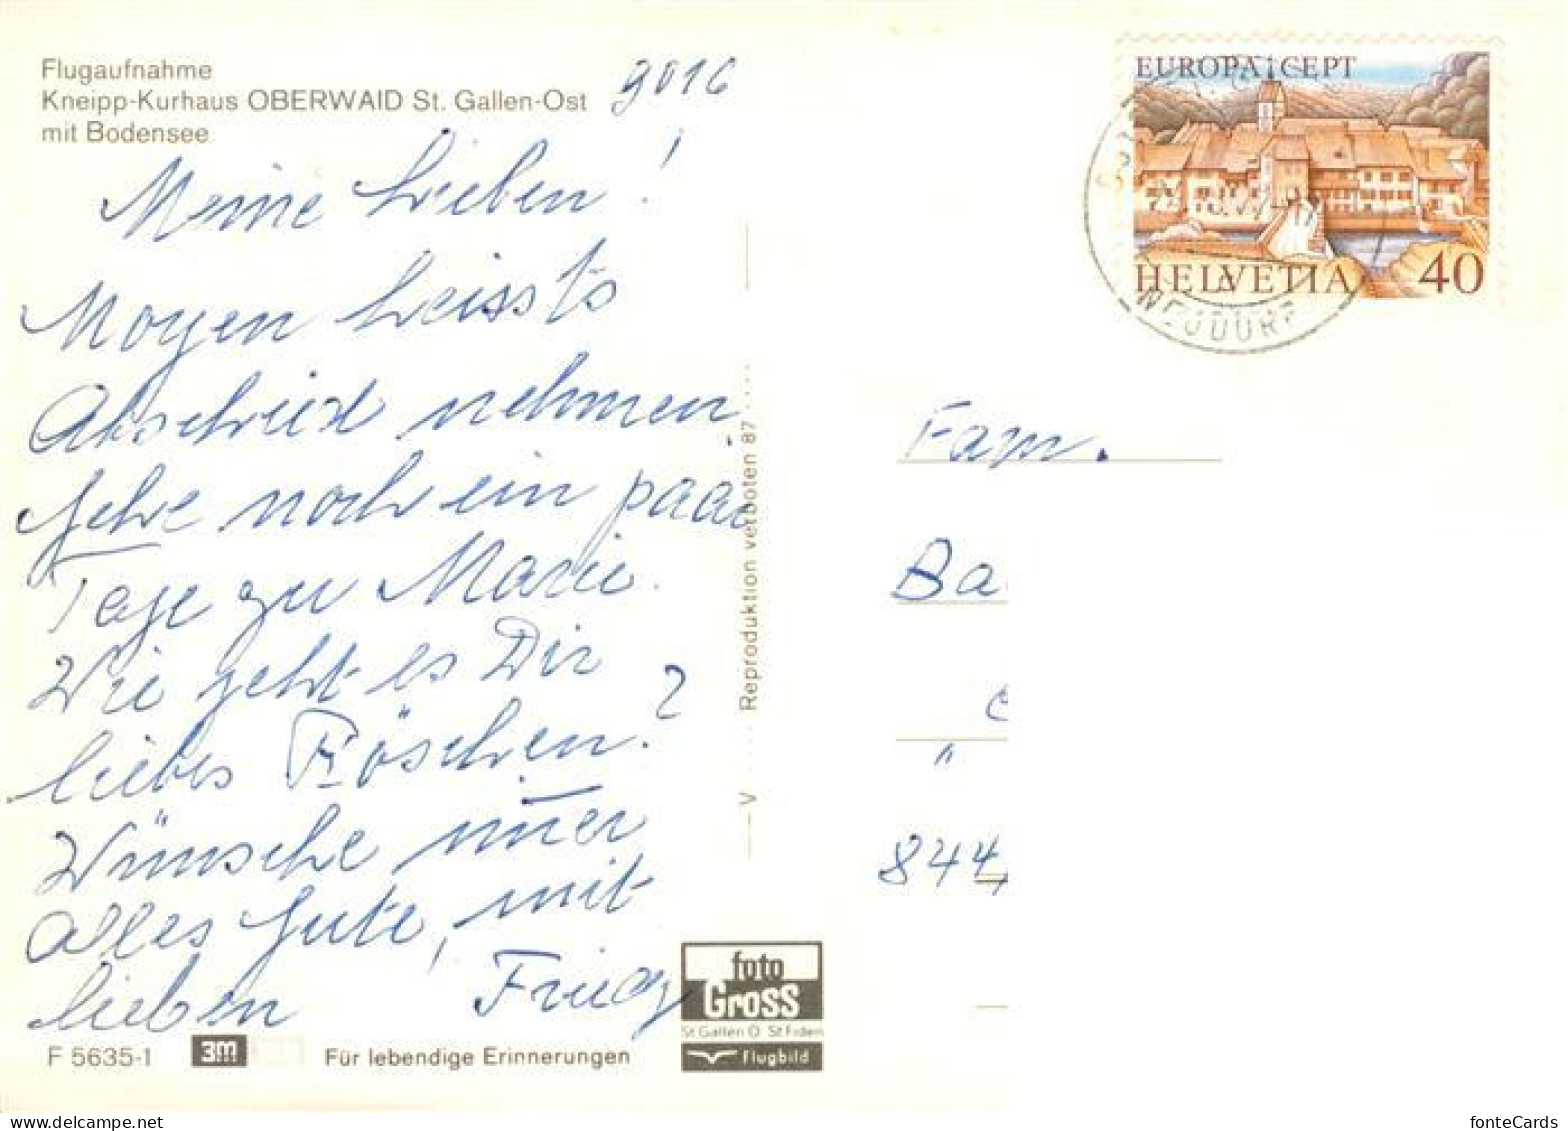 Flugaufnahme
Kneipp-Kurhaus OBERWAID St. Gallen-Ost
mit Bodensee
9016
Meine Lieben!
Morgen heissts
Abschied nehmen.
Gehe noch ein paar
Tage zu Marie.
Wie geht es Dir
liebes Röschen?
Wünsche immer
alles Gute, mit
lieben
F 5635-1
3m
Für lebendige Erinnerungen
V Reproduktion verboten 87
foto
Gross
St Gallen O St Fiden
Flugbild
EUROPA CEPT
HELVETIA 40
NEUDORF
Fam.
Ba
"
844
fonteCards
www.delcampe.net